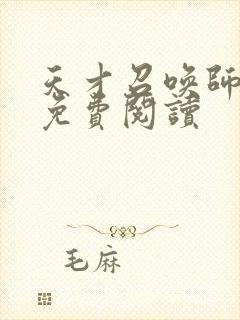 天才召喚師
免費閱讀
毛麻